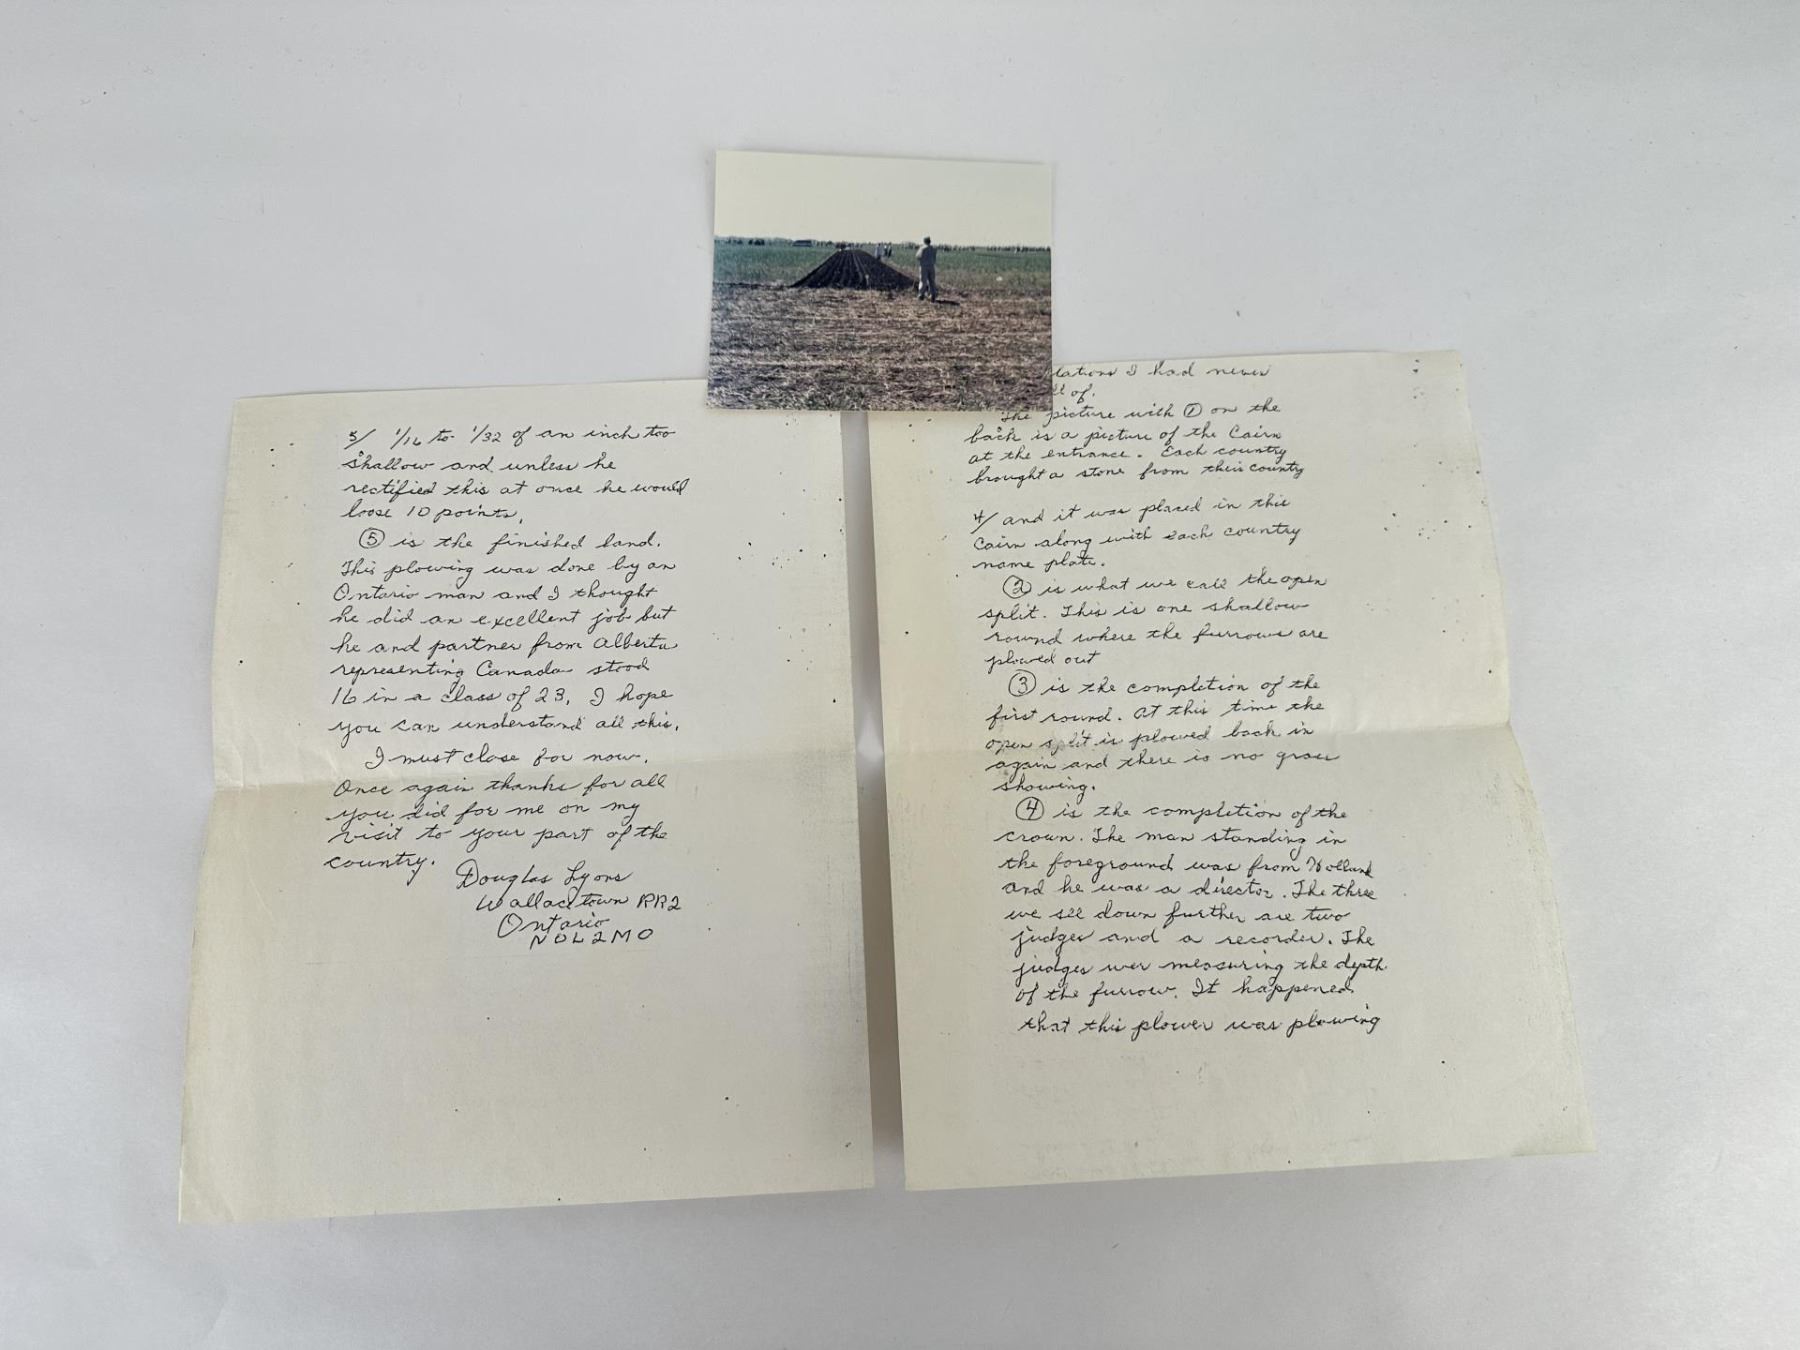 I had never
of.
The picture with ① on the
back is a picture of the Cairn
at the entrance. Each country
brought a stone from their country
4/ and it was placed in this
Cairn along with each country
name plate.
② is what we call the open
split. This is one shallow
round where the furrows are
plowed out
③ is the completion of the
first round. At this time the
open split is plowed back in
again and there is no grass
showing.
④ is the completion of the
crown. The man standing in
the foreground was from Holland
and he was a director. The three
we see down further are two
judges and a recorder. The
judges wer measuring the depth
of the furrow. It happened
that this plower was plowing
5/ 1/16 to 1/32 of an inch too
shallow and unless he
rectified this at once he would
loose 10 points.
⑤ is the finished land.
This plowing was done by an
Ontario man and I thought
he did an excellent job but
he and partner from Alberta
representing Canada stood
16 in a class of 23. I hope
you can understand all this.
I must close for now.
Once again thanks for all
you did for me on my
visit to your part of the
country.
Douglas Lyons
Wallacetown RR2
Ontario
N0L2M0